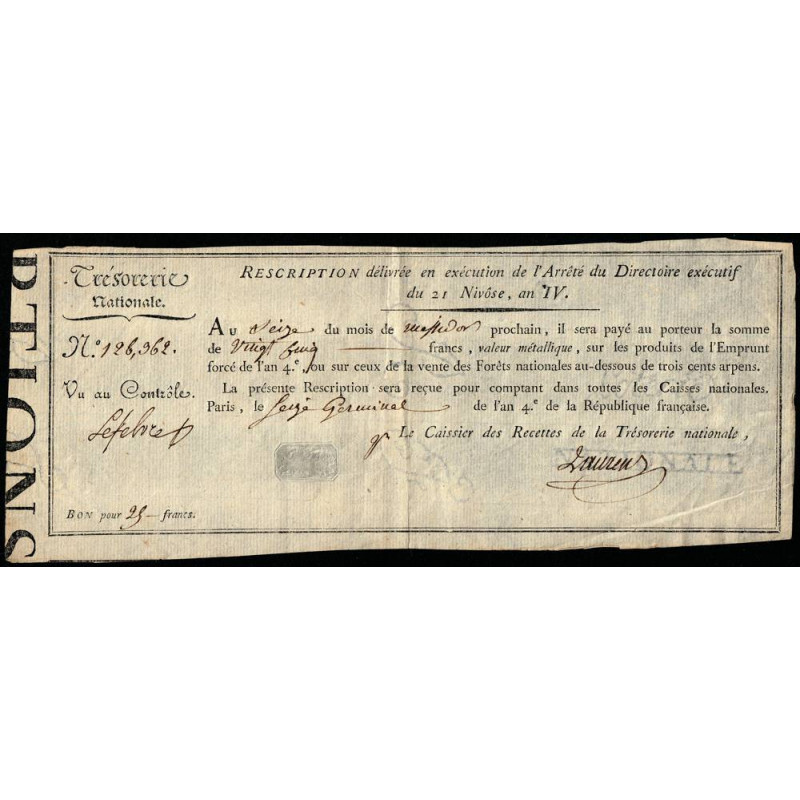 PTIONS
Trésorerie
Nationale.
N.º 126,362.
Vu au Contrôle.
Lefebvre
BON pour 25 francs.
RESCRIPTION délivrée en exécution de l'Arrêté du Directoire exécutif
du 21 Nivôse, an IV.
AU Seize du mois de messidor prochain, il sera payé au porteur la somme
de Vingt Cinq francs, valeur métallique, sur les produits de l'Emprunt
forcé de l'an 4.e, ou sur ceux de la vente des Forêts nationales au-dessous de trois cents arpens.
La présente Rescription sera reçue pour comptant dans toutes les Caisses nationales.
Paris, le Seize Germinal de l'an 4.e de la République française.
Le Caissier des Recettes de la Trésorerie nationale,
Laurens